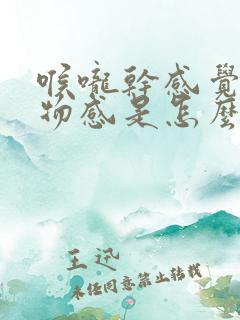 喉嚨幹感覺
物感是怎麼
王迅
未经同意禁止转载